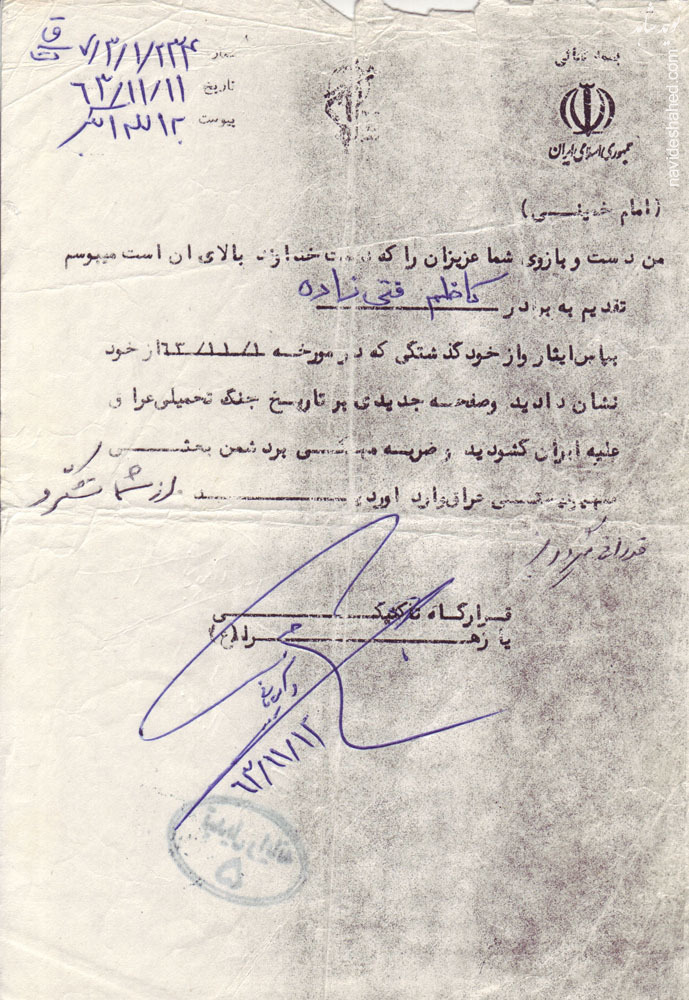 بسمه تعالی
جمهوری اسلامی ایران
شماره ۷/۳/۱/۲۳۴
تاریخ ۶۳/۱۱/۱۱
پیوست
(امام خمینی)
من دست و بازوی شما عزیزان را که دست خداوند بالای ان است میبوسم
تقدیم به برادر کاظم فتحی زاده
بپاس ایثار و از خود گذشتگی که در مورخه ۶۳/۱۱/۱ از خود
نشان دادید و صفحه جدیدی بر تاریخ جنگ تحمیلی عراق
علیه ایران گشودید و ضربه مهلکی بر دشمن بعثی
صهیونیستی عراق وارد اوردید از شما تشکر و
قدردانی میگردد
قرارگاه تاکتیکی
یا زهرا (ع)
۶۳/۱۱/۱۲
۵
navideshahed.com